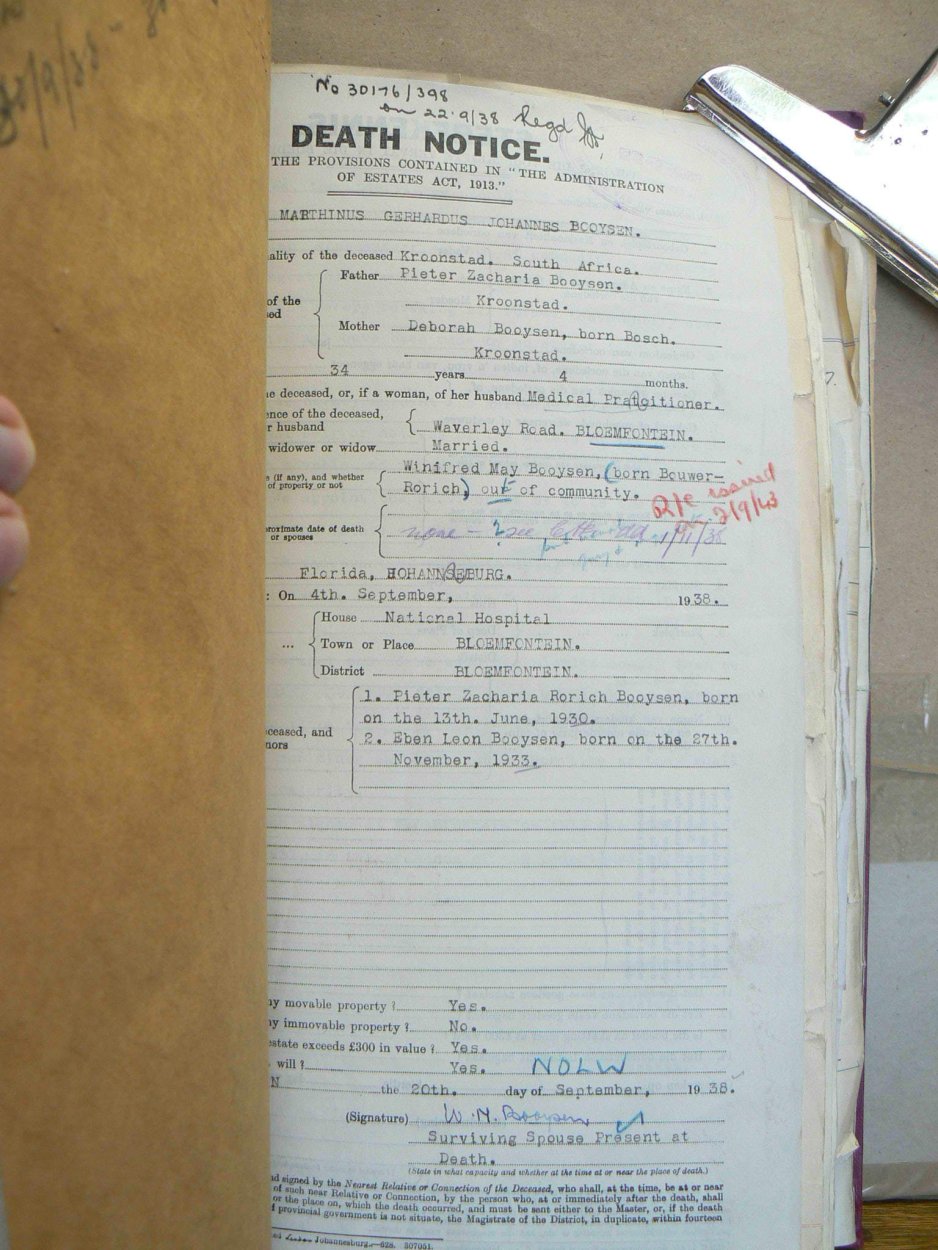 No 30176/398
on 22.9/38 Regd
DEATH NOTICE.
THE PROVISIONS CONTAINED IN "THE ADMINISTRATION
OF ESTATES ACT, 1913."
MARTHINUS GERHARDUS JOHANNES BOOYSEN.
ality of the deceased Kroonstad. South Africa.
Father Pieter Zacharia Booysen.
of the Kroonstad.
ed
Mother Deborah Booysen, born Bosch.
Kroonstad.
34 years 4 months.
e deceased, or, if a woman, of her husband Medical Practitioner.
ence of the deceased,
r husband Waverley Road. BLOEMFONTEIN.
widower or widow Married.
e (if any), and whether Winifred May Booysen, (born Bouwer-
of property or not Rorich) out of community.
2/9/43
roximate date of death none - see
or spouses
Florida, JOHANNESBURG.
: On 4th. September, 1938.
House National Hospital
... Town or Place BLOEMFONTEIN.
District BLOEMFONTEIN.
1. Pieter Zacharia Rorich Booysen, born
on the 13th. June, 1930.
eceased, and 2. Eben Leon Booysen, born on the 27th.
nors November, 1933.
ny movable property ? Yes.
ny immovable property ? No.
estate exceeds £300 in value ? Yes.
will ? Yes. NOLW
N the 20th. day of September, 1938.
(Signature) W. M. Booysen
Surviving Spouse Present at
Death.
(State in what capacity and whether at the time at or near the place of death.)
nd signed by the Nearest Relative or Connection of the Deceased, who shall, at the time, be at or near
of such near Relative or Connection, by the person who, at or immediately after the death, shall
or the place on, which the death occurred, and must be sent either to the Master, or, if the death
f provincial government is not situate, the Magistrate of the District, in duplicate, within fourteen
Johannesburg.—628. 307051.
7.